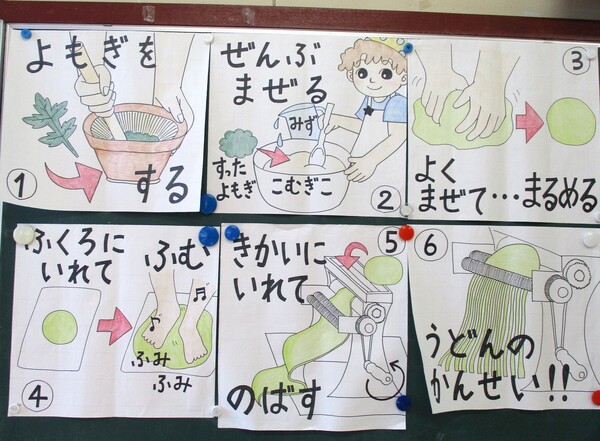 よもぎを
する
①
ぜんぶ
まぜる
みず
すった
よもぎ
こむぎこ
②
③
よく
まぜて・・・まるめる
ふくろに
いれて
ふむ
ふみ
ふみ
④
⑤
きかいに
いれて
のばす
⑥
うどんの
かんせい!!